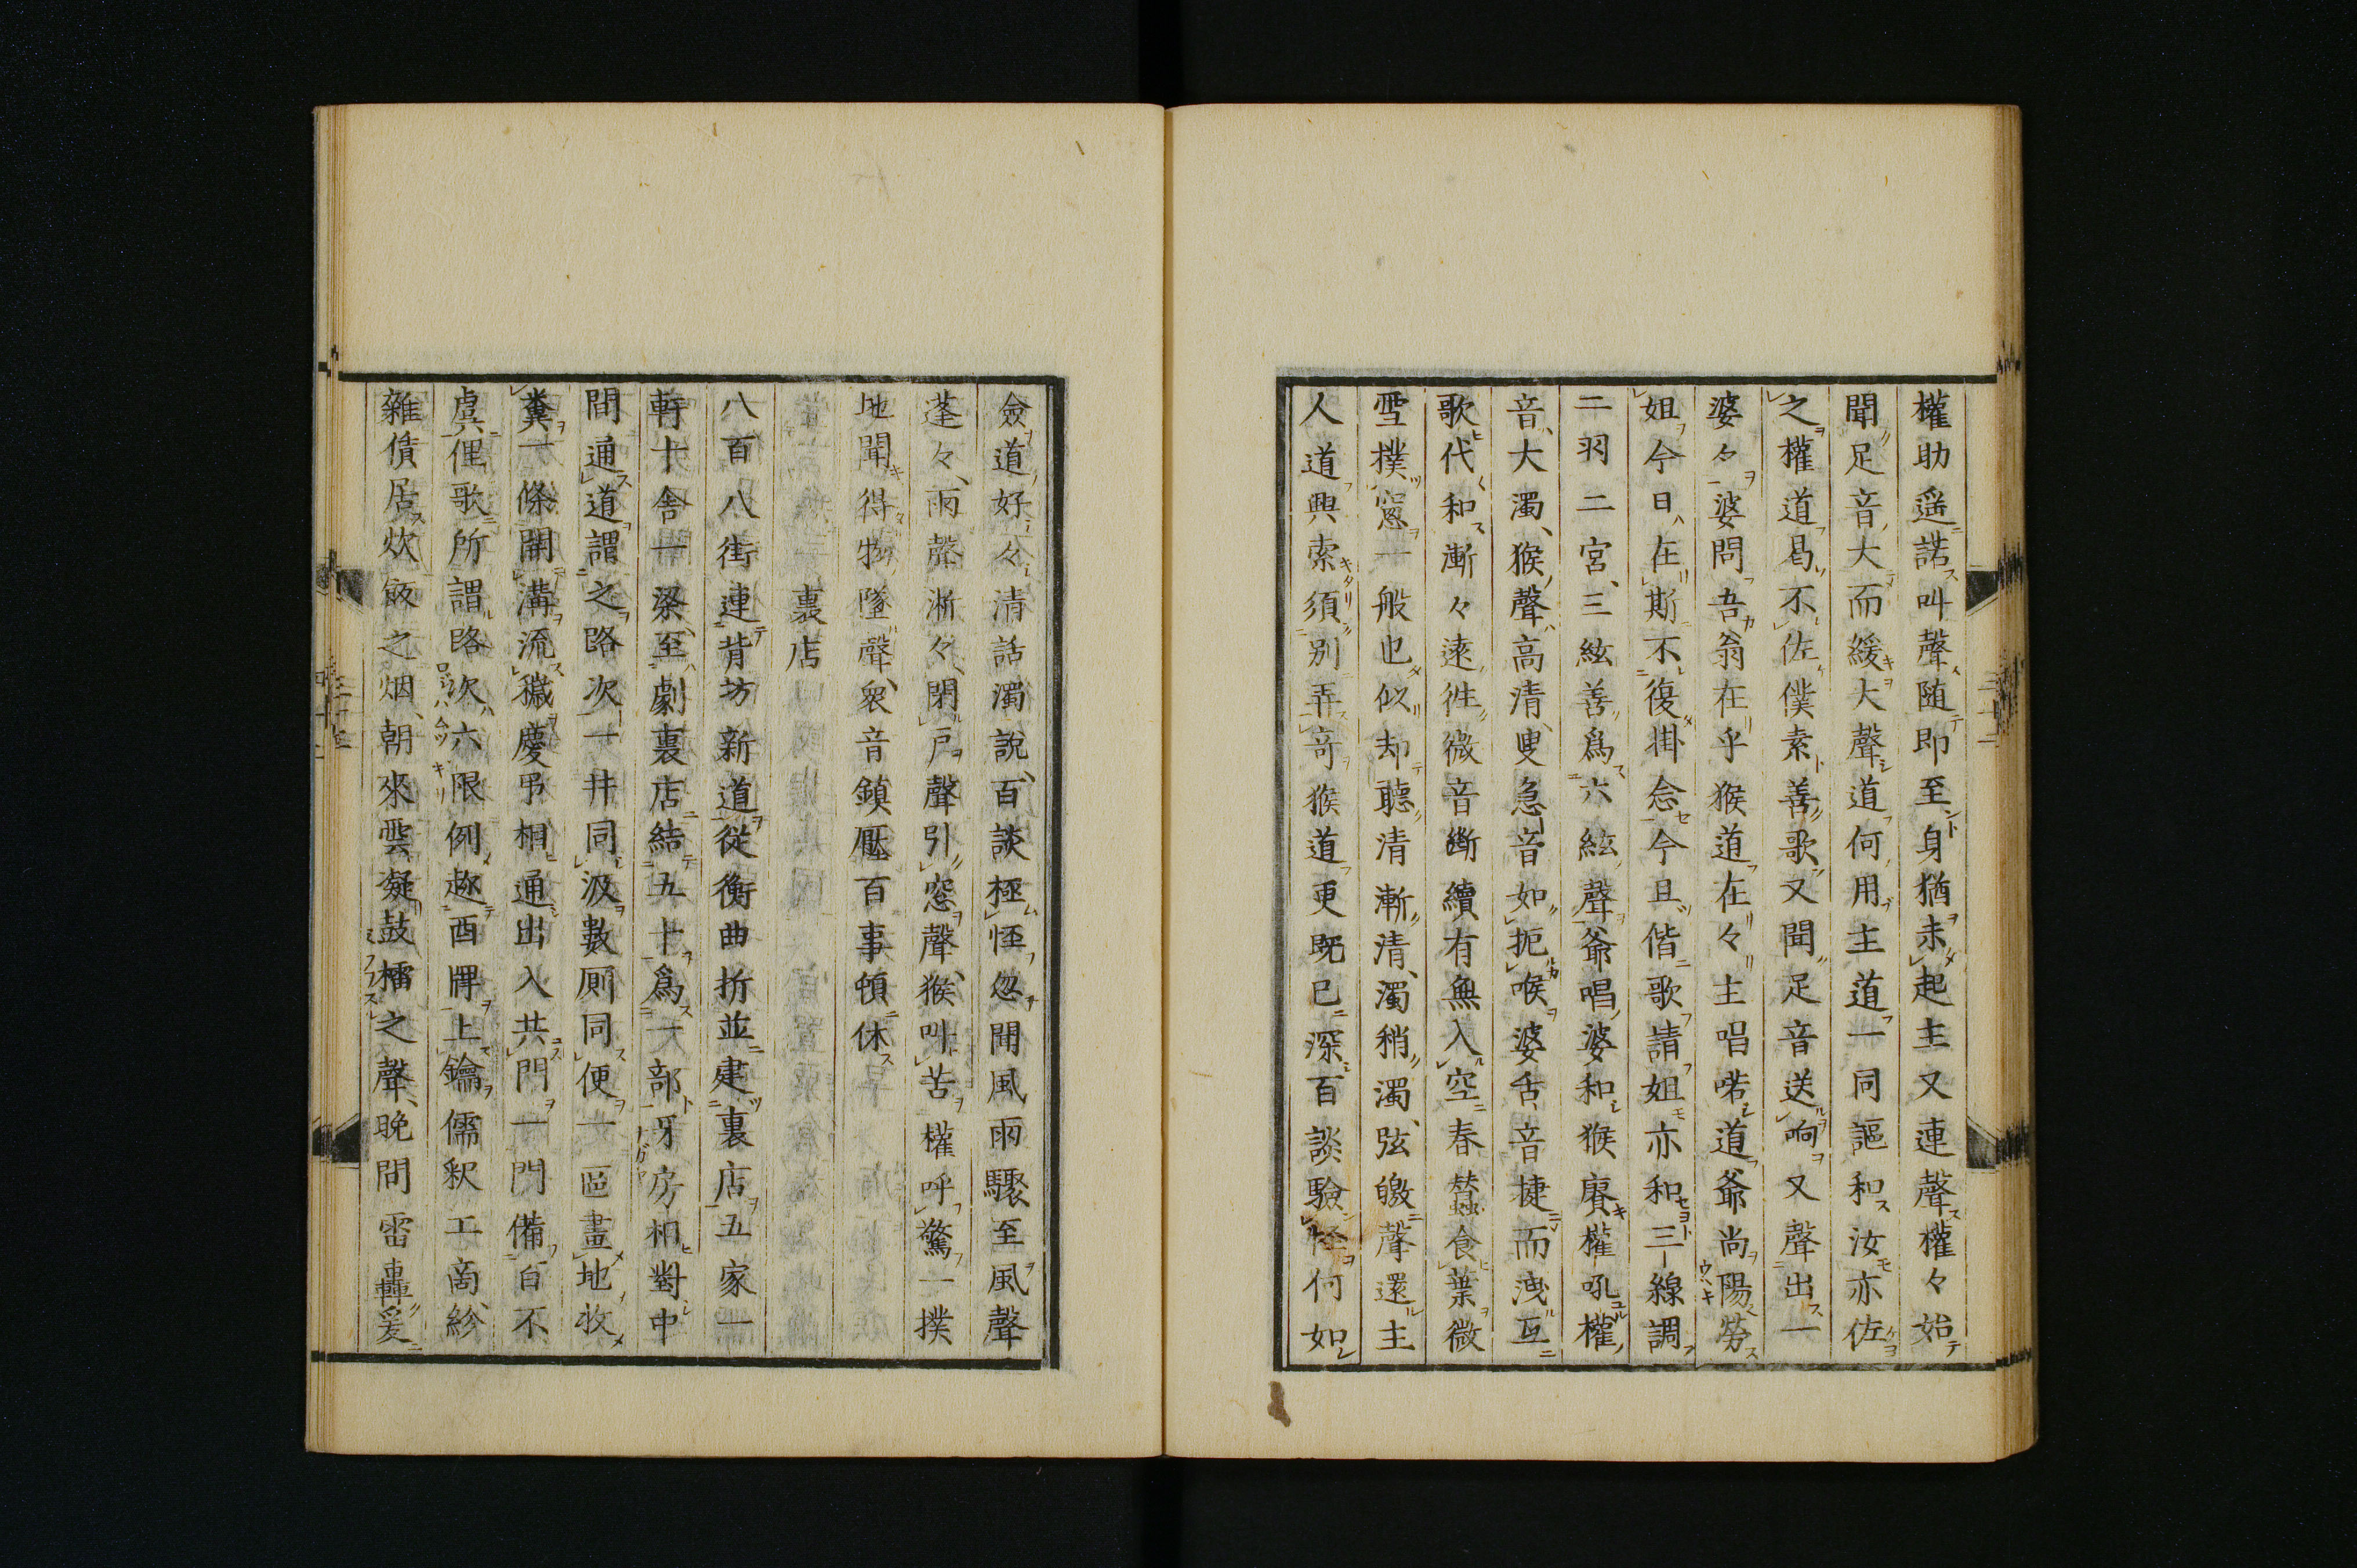 權助遥諾叫聲随即至身猶未起主又連聲權々始
聞足音大而緩大聲道何用主道一同謳和汝亦佐
之權道曷不佐僕素善歌又聞足音送响又聲出一
婆々婆問吾翁在乎猴道在々主唱喏道爺尚陽勞
姐今日在斯不復掛念今且偕歌請姐亦和三線調
二羽二宮三絃善爲六絃聲爺唱婆和猴賡權吼權
音大濁猴聲高清叟急音如扼喉婆舌音捷而洩互
歌代和漸々遠徃微音斷續有無入空春蠶食葉微
雪撲窓一般也似却聽清漸清濁稍濁弦皦聲還主
人道興索須別弄竒猴道更既已深百談驗怪何如
僉道好々清話濁説百談極怪忽聞風雨驟至風聲
蓬々雨聲淅々閉戸聲引窓聲猴叫苦權呼驚一撲
地聞得物墜聲衆音鎮壓百事頓休
裏店
八百八街連背坊新道從衡曲折並建裏店五家一
軒十舎一梁至劇裏店結五十爲一部牙房相對中
間通道謂之路次一井同汲數厠同便一區畫地收
糞一條開溝流穢慶弔相通出入共門一門備自不
虞俚歌所謂路次六限例趂酉牌上鑰儒釈工啇紾
雜僨居炊飯之烟朝來雲凝鼓櫺之聲晩間雷轟爰